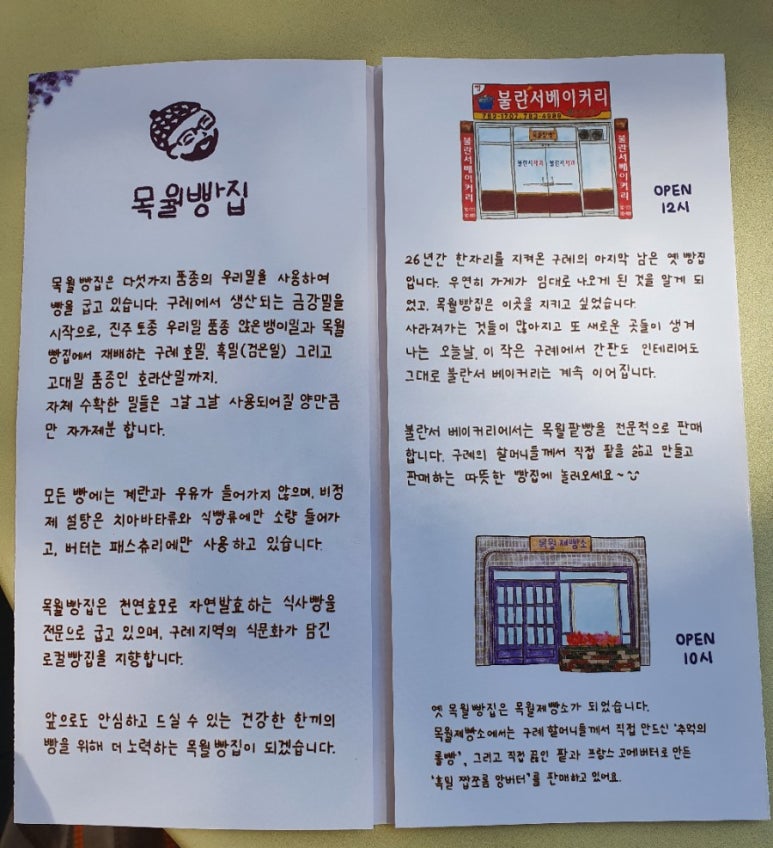 목월빵집
목월빵집은 다섯가지 품종의 우리밀을 사용하여
빵을 굽고 있습니다. 구례에서 생산되는 금강밀을
시작으로, 진주 토종 우리밀 품종 앉은뱅이밀과 목월
빵집에서 재배하는 구례 호밀, 흑밀(검은밀) 그리고
고대밀 품종인 호라산밀까지.
자체 수확한 밀들은 그날 그날 사용되어질 양만큼
만 자가제분 합니다.
모든 빵에는 계란과 우유가 들어가지 않으며, 비정
제 설탕은 치아바타류와 식빵류에만 소량 들어가
고, 버터는 패스츄리에만 사용하고 있습니다.
목월빵집은 천연효모로 자연발효하는 식사빵을
전문으로 굽고 있으며, 구례지역의 식문화가 담긴
로컬빵집을 지향합니다.
앞으로도 안심하고 드실 수 있는 건강한 한끼의
빵을 위해 더 노력하는 목월빵집이 되겠습니다.
불란서베이커리
782-1707, 783-4989
불란서베이커리
불란서제과 불란서제과
불란서베이커리
OPEN
12시
26년간 한자리를 지켜온 구례의 마지막 남은 옛 빵집
입니다. 우연히 가게가 임대로 나오게 된 것을 알게 되
었고, 목월빵집은 이곳을 지키고 싶었습니다.
사라져가는 것들이 많아지고 또 새로운 곳들이 생겨
나는 오늘날, 이 작은 구례에서 간판도 인테리어도
그대로 불란서 베이커리는 계속 이어집니다.
불란서 베이커리에서는 목월팥빵을 전문적으로 판매
합니다. 구례의 할머니들께서 직접 팥을 삶고 만들고
판매하는 따뜻한 빵집에 놀러오세요~
목월제빵소
OPEN
10시
옛 목월빵집은 목월제빵소가 되었습니다.
목월제빵소에서는 구례 할머니들께서 직접 만드신 '추억의
롤빵', 그리고 직접 끓인 팥과 프랑스 고메버터로 만든
'흑밀 짭쪼롬 앙버터'를 판매하고 있어요.